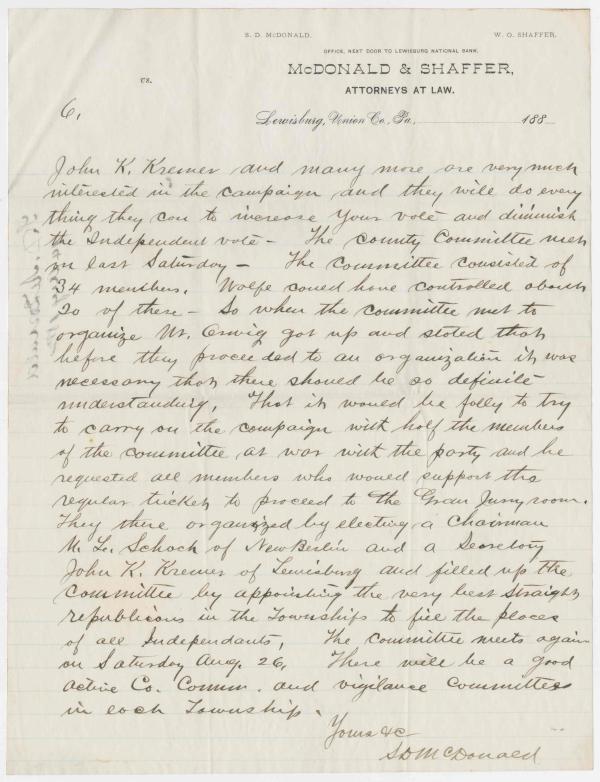 S. D. McDONALD. W. O. SHAFFER.
OFFICE, NEXT DOOR TO LEWISBURG NATIONAL BANK.
McDONALD & SHAFFER,
vs.
ATTORNEYS AT LAW.
6,
Lewisburg, Union Co., Pa. 188
John K. Kremer and many more are very much
interested in the campaign and they will do every
thing they can to increase your vote and diminish
the Independent vote – The county Committee met
on last Saturday – The committee consisted of
34 members. Wolfe could have controlled about
20 of these – So when the committee met to
organize Mr. Orwig got up and stated that
before they proceeded to an organization it was
necessary that there should be so definite
understanding, That it would be folly to try
to carry on the campaign with half the members
of the committee at war with the party and he
requested all members who would support the
regular ticket to proceed to the Gran Jury room.
They there organized by electing a Chairman
M. L. Schoch of New Berlin and a Secretary
John K. Kremer of Lewisburg and filled up the
committee by appointing the very best straight
republicans in the Townships to fill the places
of all Independants, The committee meets again
on Saturday Aug. 26, There will be a good
active Co. Comm. and vigilance committees
in each Township.
Yours &c
S D McDonald